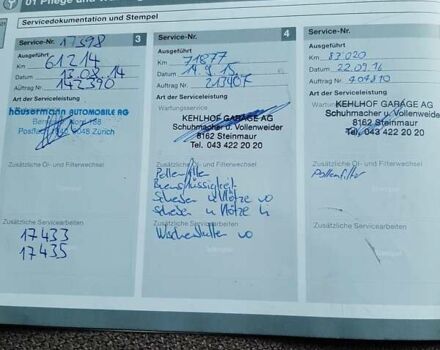 01 Pflege und
Servicedokumentation und Stempel
Service-Nr. 17398 3
Ausgeführt
Km 61214
Datum 13.08.14
Auftrag Nr. 142390
Art der Serviceleistung
häusermann AUTOMOBILE AG
8048 Zürich
Zusätzliche Öl- und Filterwechsel
Zusätzliche Servicearbeiten
17433
17435
Service-Nr. 4
Ausgeführt
Km 71877
Datum 14.9.15
Auftrag Nr. 213407
Art der Serviceleistung
Wartungsservice
KEHLHOF GARAGE AG
Schuhmacher u. Vollenweider
8162 Steinmaur
Tel. 043 422 20 20
Zusätzliche Öl- und Filterwechsel
Pollenfilter
Bremsflüssigkeit
Scheiben u Klötze vo
Scheiben u Klötze hi
Zusätzliche Servicearbeiten
Wischerblätter vo
Service-Nr.
Ausgeführt
Km 83020
Datum 22.09.16
Auftrag Nr. 407810
Art der Serviceleistung
KEHLHOF GARAGE AG
Schuhmacher u. Vollenweider
8162 Steinmaur
Tel. 043 422 20 20
Zusätzliche Öl- und Filterwechsel
Pollenfilter
Zusätzliche Servicearbeiten